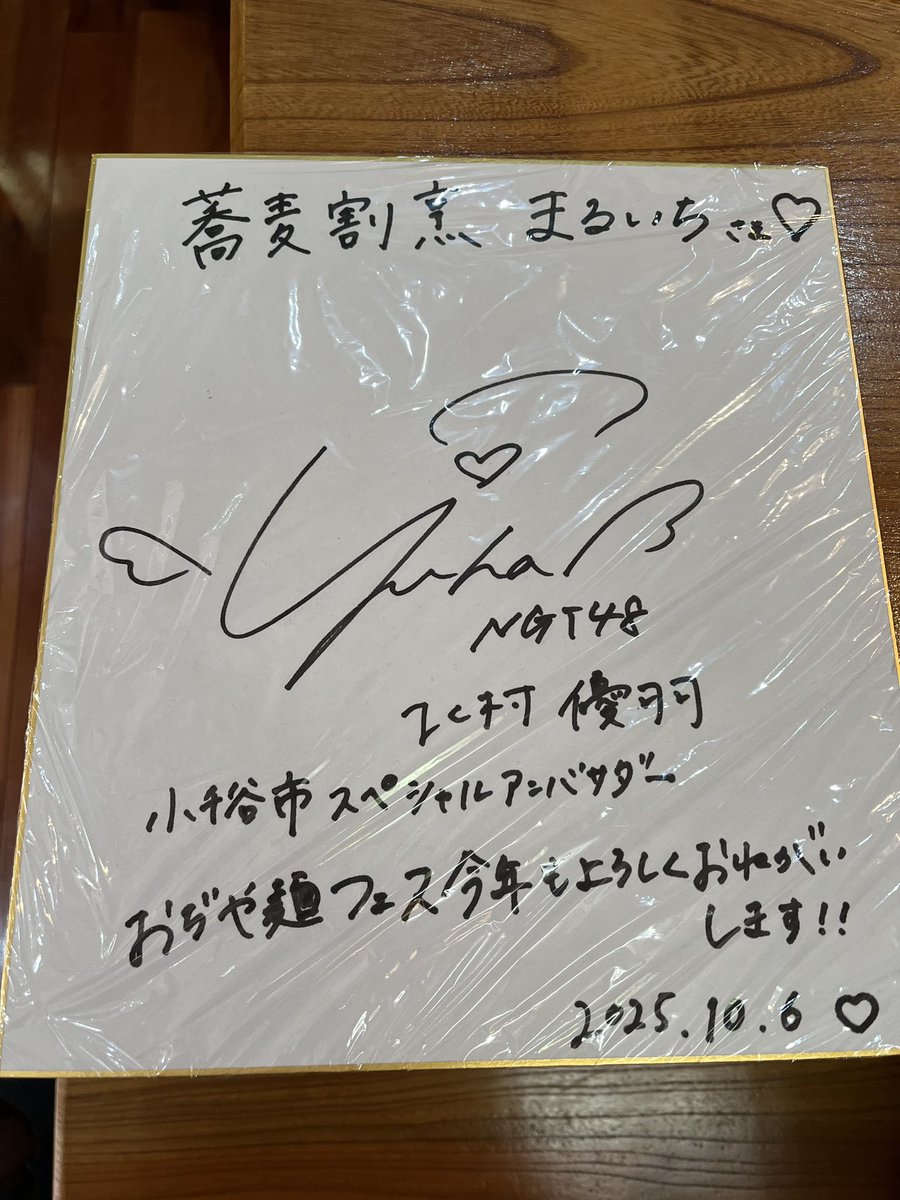 蕎麦割烹 まるいちさま♡
Yuha
NGT48
北村 優羽
小千谷市スペシャルアンバサダー
おぢや麺フェス今年もよろしくおねがい
します!!
2025.10.6 ♡